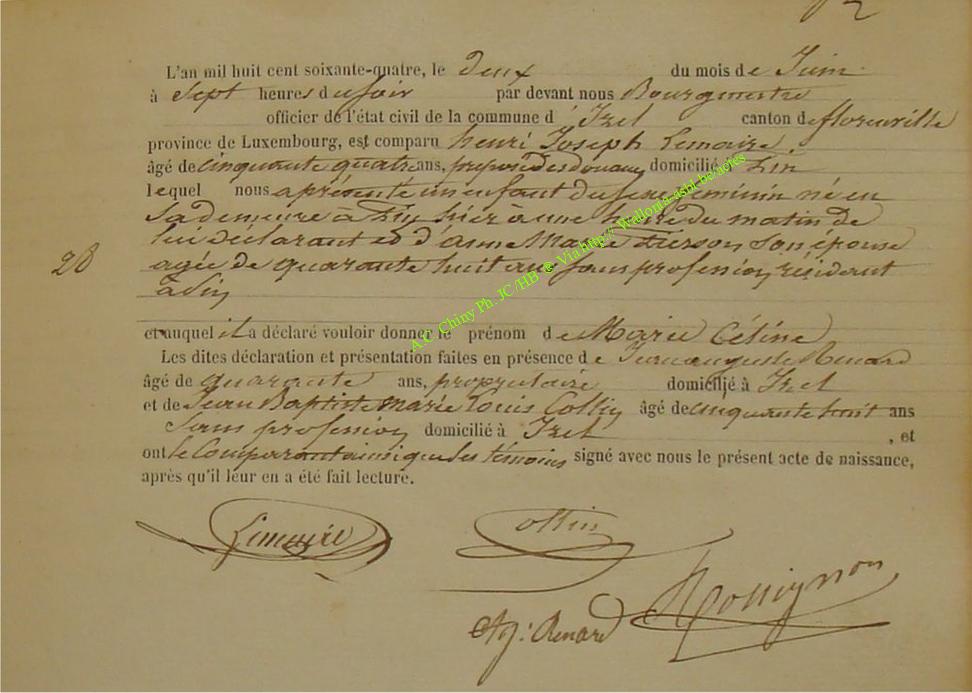 L'an mil huit cent soixante-quatre, le deux du mois de Juin
à Sept heures du soir par devant nous Bourgmestre
officier de l'état civil de la commune d'Izel canton de florenville
province de Luxembourg, est comparu henri Joseph Lemaire,
âgé de cinquante quatre ans, préposé des douanes domicilié à Pin
lequel nous a présenté un enfant du sexe féminin né en
sa demeure à Pin, hier à une heure du matin de
lui déclarant et d'anne Marie Pierson, son épouse
28
agée de quarante huit ans sans profession, résidant
à Pin
et auquel il a déclaré vouloir donner le prénom de Marie Céline
Les dites déclaration et présentation faites en présence de Jean auguste Renard
âgé de quarante ans, propriétaire domicilié à Izel
et de Jean Baptiste Marie Louis Collin âgé de cinquante huit ans
Sans profession domicilié à Izel , et
ont le Comparant ainsi que les témoins signé avec nous le présent acte de naissance,
après qu'il leur en a été fait lecture.
Lemaire Collin
Rossignon
Ag: Renard
A.C. Chiny Ph. JC/HB & Via http://Wallonia-asbl-be/actes